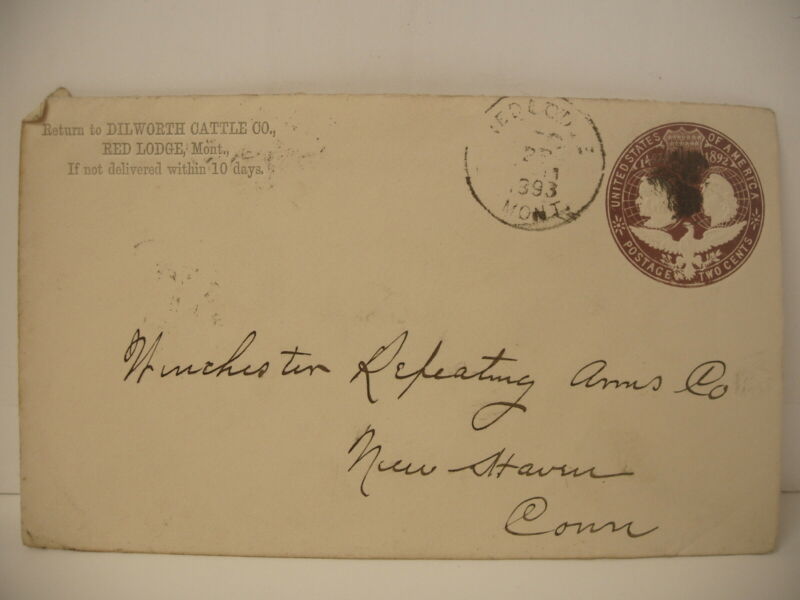 Return to DILWORTH CATTLE CO.,
RED LODGE, Mont.,
If not delivered within 10 days.
1893
MONT.
UNITED STATES OF AMERICA
1492 1892
POSTAGE TWO CENTS
Winchester Repeating Arms Co
New Haven
Conn